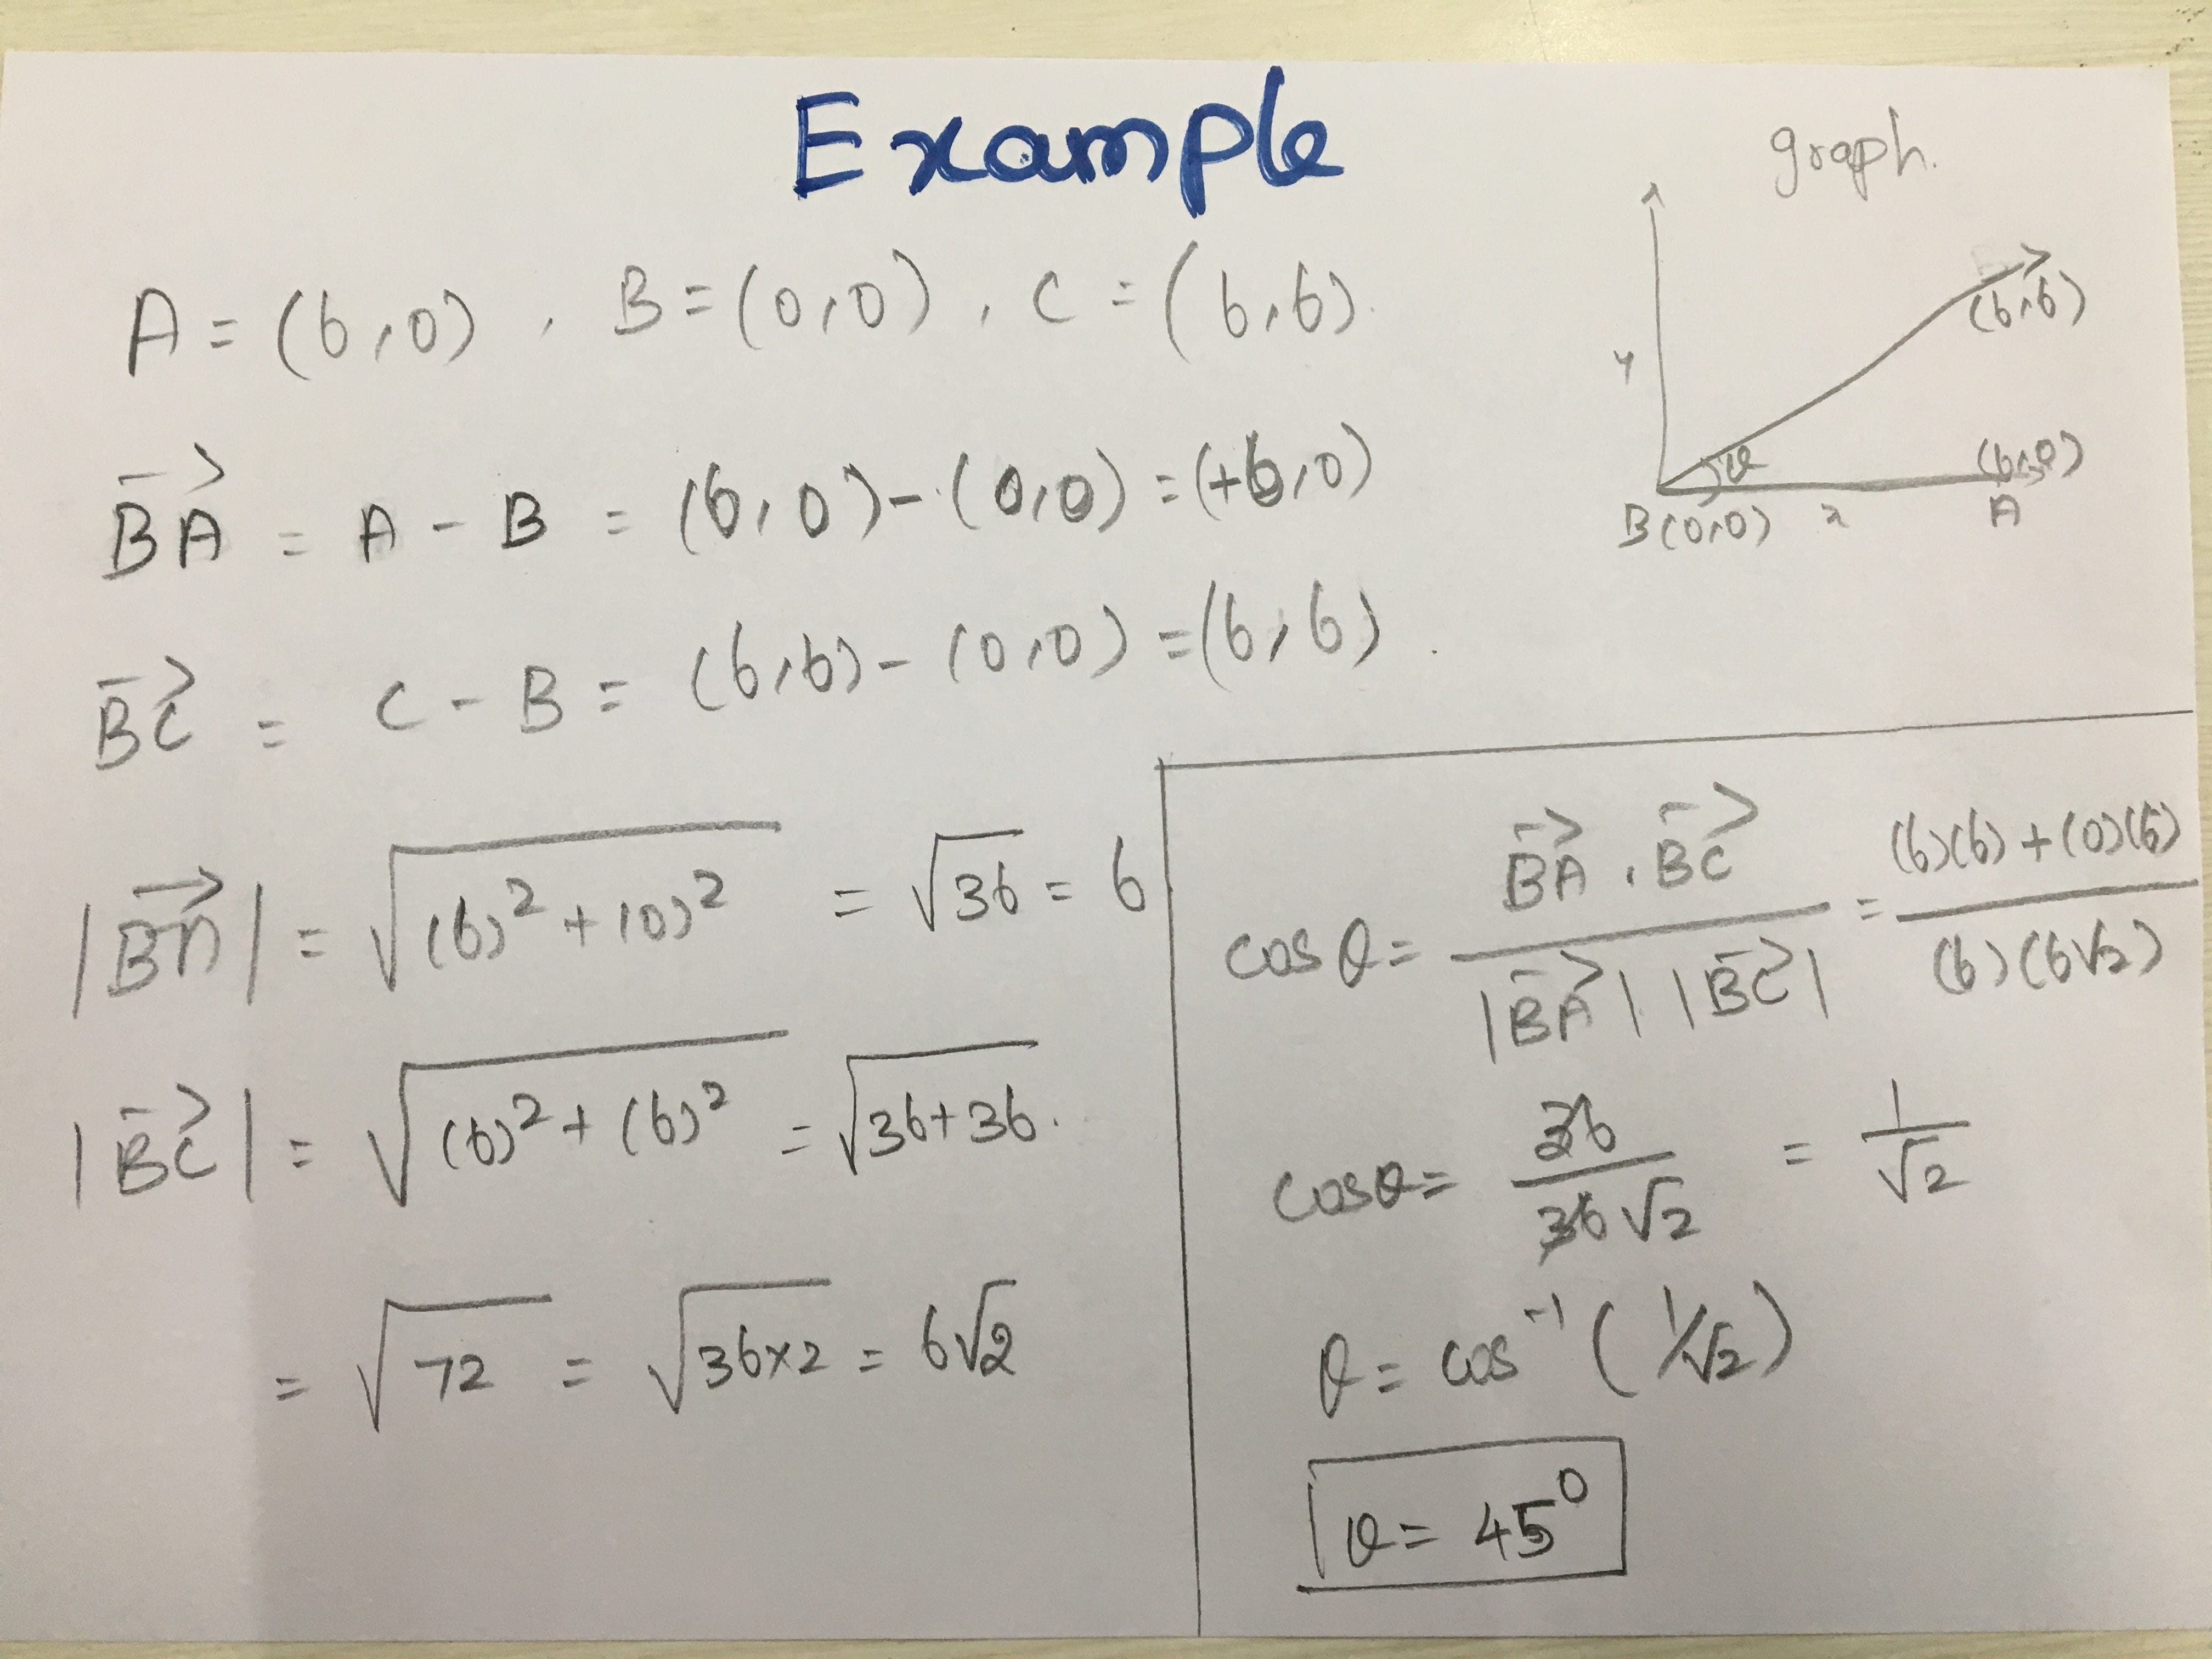 Example
A = (6,0) , B = (0,0) , C = (6,6).
BA⃗ = A - B = (6,0) - (0,0) = (+6,0)
BC⃗ = C - B = (6,6) - (0,0) = (6,6).
|BA⃗| = √((6)² + (0)²) = √36 = 6
|BC⃗| = √((6)² + (6)²) = √(36+36).
= √72 = √(36×2) = 6√2
graph.
y
(6,6)
θ
(6,0)
B(0,0) x A
cos θ = (BA⃗ . BC⃗) / (|BA⃗| . |BC⃗|) = ((6)(6) + (0)(6)) / ((6)(6√2))
cosθ = 36 / (36√2) = 1/√2
θ = cos⁻¹ (1/√2)
θ = 45⁰